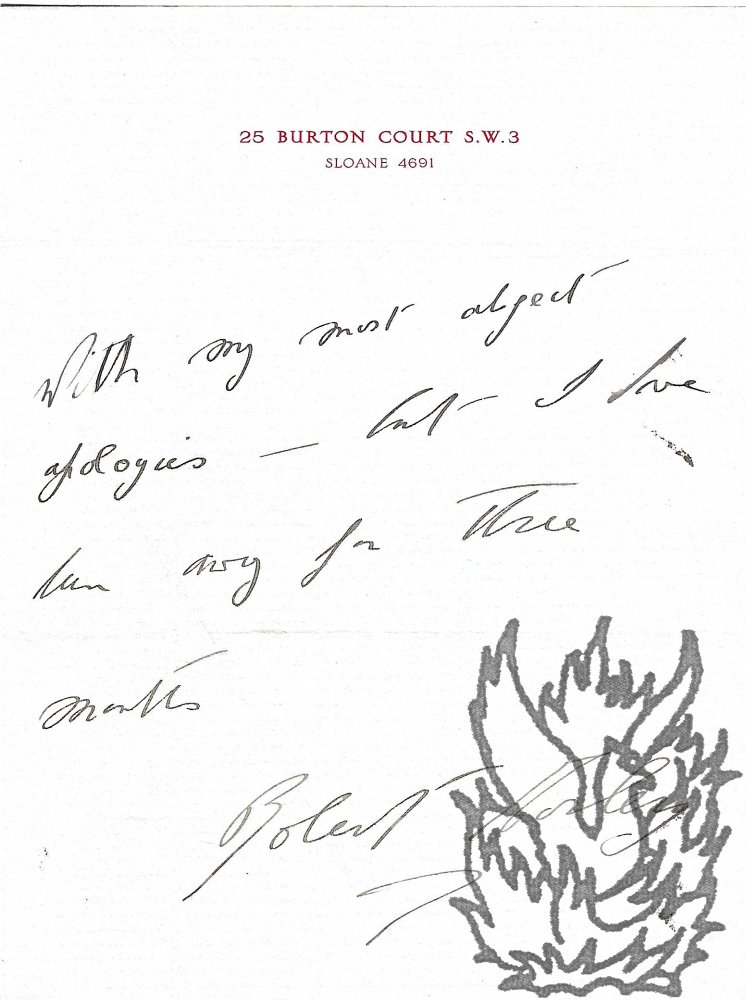 25 BURTON COURT S.W.3
SLOANE 4691
With my most abject
apologies — but I have
been away for three
months
Robert Morley